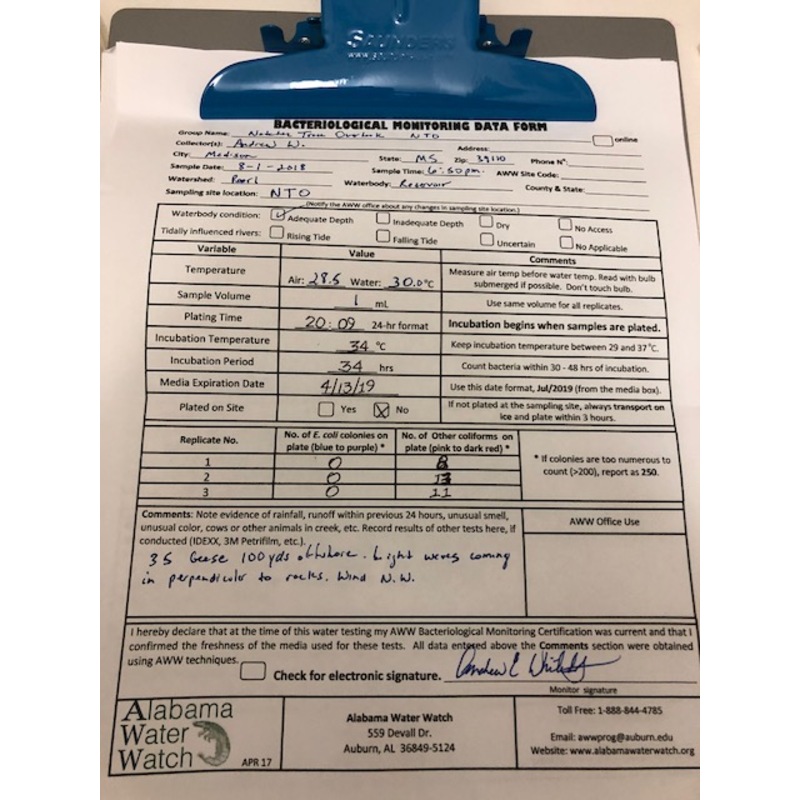 SAUNDERS
BACTERIOLOGICAL MONITORING DATA FORM
Group Name: Natchez Trace Overlook NTO online
Collector(s): Andrew W. Address:
City: Madison State: MS Zip: 39110 Phone N°:
Sample Date: 8-1-2018 Sample Time: 6:50pm. AWW Site Code:
Watershed: Pearl Waterbody: Reservoir County & State:
Sampling site location: NTO
(Notify the AWW office about any changes in sampling site location.)
Waterbody condition: Adequate Depth Inadequate Depth Dry No Access
Tidally influenced rivers: Rising Tide Falling Tide Uncertain No Applicable
Variable Value Comments
Temperature Air: 28.5 Water: 30.0°C Measure air temp before water temp. Read with bulb
submerged if possible. Don't touch bulb.
Sample Volume 1 mL Use same volume for all replicates.
Plating Time 20:09 24-hr format Incubation begins when samples are plated.
Incubation Temperature 34 °C Keep incubation temperature between 29 and 37°C.
Incubation Period 34 hrs Count bacteria within 30 - 48 hrs of incubation.
Media Expiration Date 4/13/19 Use this date format, Jul/2019 (from the media box).
Plated on Site Yes No If not plated at the sampling site, always transport on
ice and plate within 3 hours.
Replicate No. No. of E. coli colonies on No. of Other coliforms on
plate (blue to purple) * plate (pink to dark red) *
1 0 8
2 0 13
3 0 11
* If colonies are too numerous to
count (>200), report as 250.
Comments: Note evidence of rainfall, runoff within previous 24 hours, unusual smell,
unusual color, cows or other animals in creek, etc. Record results of other tests here, if
conducted (IDEXX, 3M Petrifilm, etc.).
35 Geese 100yds offshore. Light waves coming
in perpendicular to rocks. Wind N.W.
AWW Office Use
I hereby declare that at the time of this water testing my AWW Bacteriological Monitoring Certification was current and that I
confirmed the freshness of the media used for these tests. All data entered above the Comments section were obtained
using AWW techniques.
Check for electronic signature. Andrew E
Monitor signature
Alabama
Water
Watch
APR 17
Alabama Water Watch
559 Devall Dr.
Auburn, AL 36849-5124
Toll Free: 1-888-844-4785
Email: awwprog@auburn.edu
Website: www.alabamawaterwatch.org